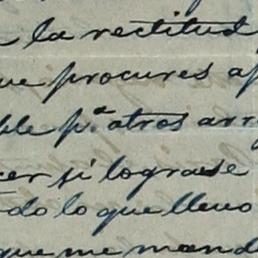 la rectitud
ue procures a
ble p.ª otros arr
cer si lograse
do lo que llevo
que me mand